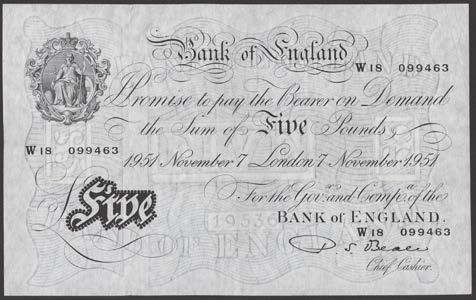 Bank of England
W18 099463
I Promise to pay the Bearer on Demand
the Sum of Five Pounds
W18 099463
1951 November 7 London 7 November 1951
For the Govr. and Compa. of the
BANK of ENGLAND.
W18 099463
Five
P. S. Beale
Chief Cashier.